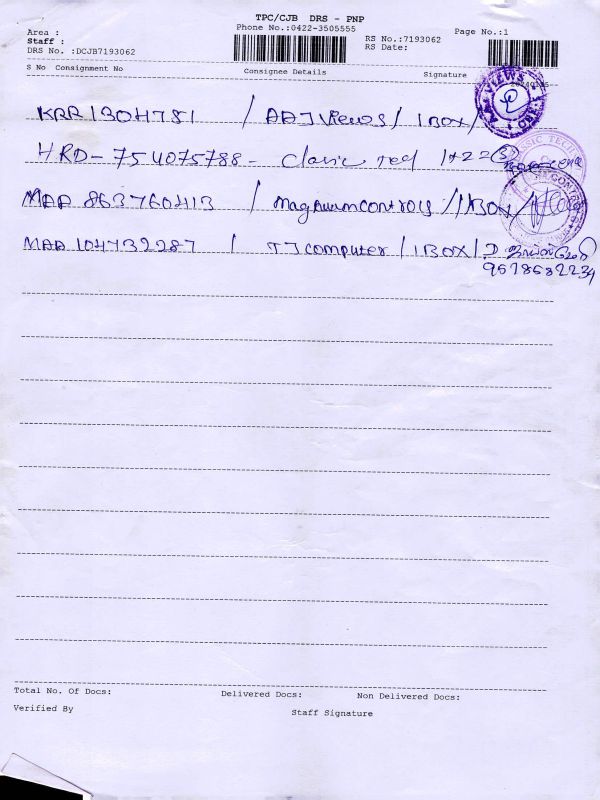 TPC/CJB DRS - PNP
Phone No.:0422-3505555
Area :
Staff :
DRS No. :DCJB7193062
RS No.:7193062
RS Date:
Page No.:1
S No Consignment No Consignee Details Signature
KRR 1304781 / AAJ Views / 1 BOX /
HRD- 754075788 - Classic red 1+22
MAA 863760413 / Magnum controls / 1 BOX /
MAA 104732287 / TJ computer / 1 BOX / D
9678682234
Total No. Of Docs: Delivered Docs: Non Delivered Docs:
Verified By Staff Signature